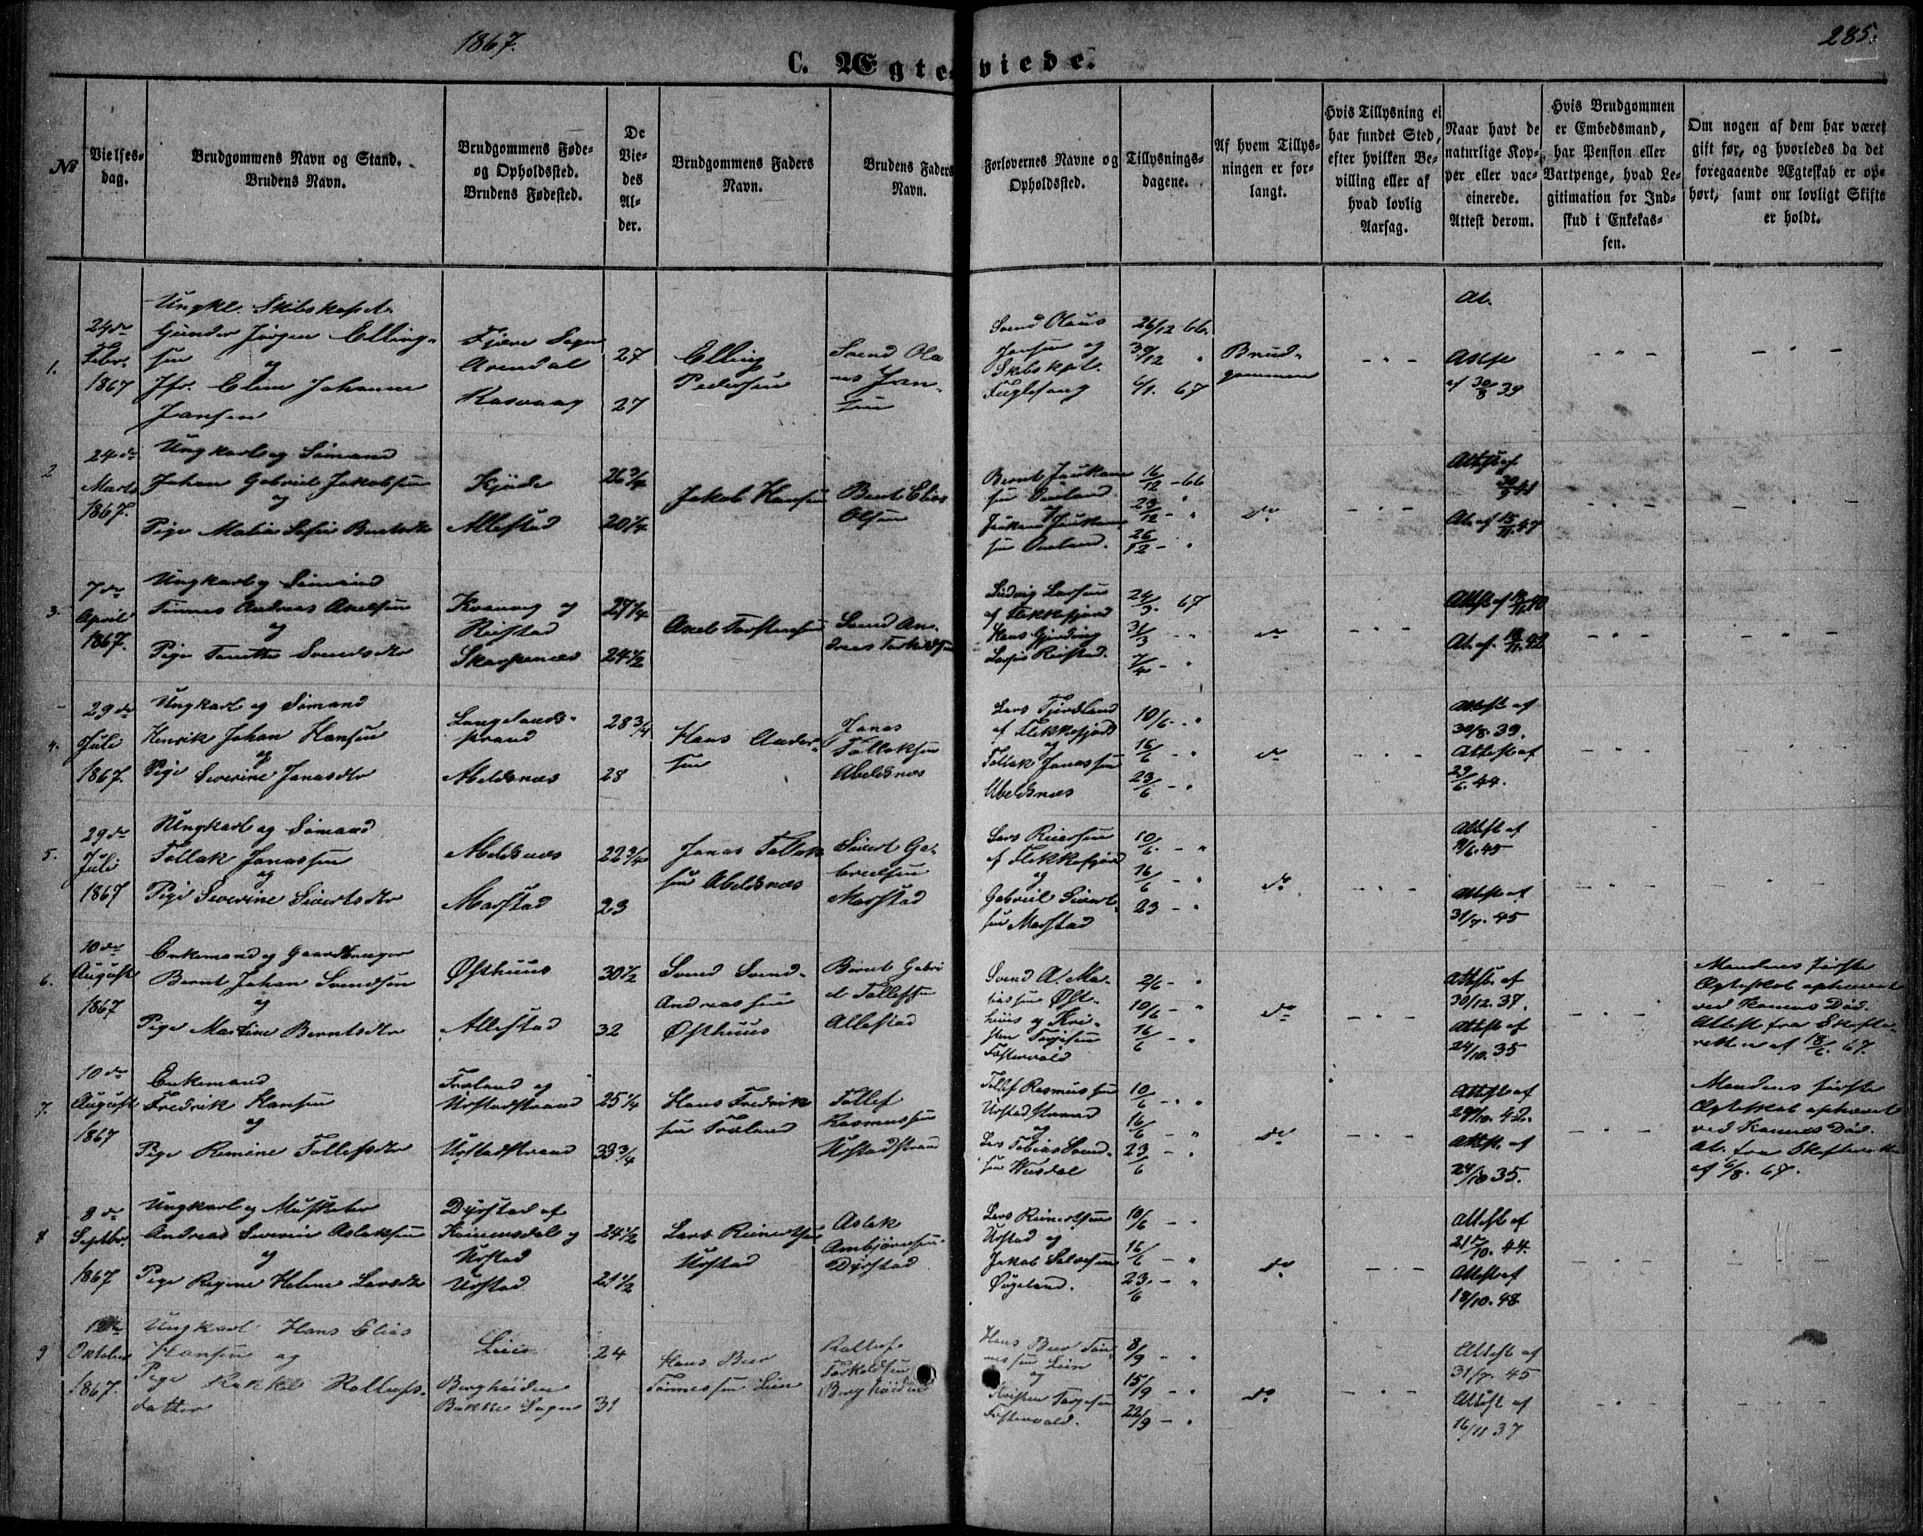 1867.
285.
C. Ægteviede.
No
Vielses-
dag.
Brudgommens Navn og Stand.
Brudens Navn.
Brudgommens Føde-
og Opholdssted.
Brudens Fødested.
De
Vie-
des
Al-
der.
Brudgommens Faders
Navn.
Brudens Faders
Navn.
Forlovernes Navne og
Opholdssted.
Tillysnings-
dagene.
Af hvem Tillys-
ningen er for-
langt.
Hvis Tillysning ei
har fundet Sted,
efter hvilken Be-
villing eller af
hvad lovlig
Aarsag.
Naar havt de
naturlige Kop-
per eller vac-
cinerede.
Attest derom.
Hvis Brudgommen
er Embedsmand,
har Pension eller
Vartpenge, hvad Le-
gitimation for Ind-
skud i Enkekas-
sen.
Om nogen af dem har været
gift før, og hvorledes da det
foregaaende Ægteskab er op-
hørt, samt om lovligt Skifte
er holdt.
1.
24de
Febr.
1867
Ungkl. Skibskapt.
Gunder Jørgen Elling-
sen
og
Jfr. Eline Johanne
Jansen
Fjære Sogn
Arendal
Rasvaag
27
27
Elling
Pedersen
Svend Ola-
us Jan-
sen
Svend Olaus
Jansen og
Skibskpt.
Fuglesang
26/12 66.
30/12 "
6/1. 67
Brud-
gommen
At.
af 30/8 39
2
24de
Marts
1867.
Ungkarl og Sømand
Johan Gabriel Jakobsen
og
Pige Malia Sofie Berntsdtr
Kjøde
Allestad
26 3/4
20 1/4
Jakob Hansen
Bernt Elias
Olsen
16/12 - 66
23/12 - "
26/12 - "
do
Attest af
At. af 15/11 47
3.
7de
April
1867.
Ungkarl og Sømand
Tønnes Andreas Axelsen
og
Pige Svendsdtr
og
Reistad
27 1/4
24 1/2
Axel Torstensen
Svend An-
dreas Torkildsen
Ludvig Larsen
af Flekkefjord
Reistad.
24/3. 67
31/3 - "
7/4 - "
do
Attest af
At. af
4.
29de
Juli
1867.
Ungkarl og Sømand
Henrik Johan Hansen
og
Pige Severine Jonasdtr
Langelands-
strand
Abelsnæs
28 3/4
28
Hans Ander-
sen
Jonas
Tollaksen
Abelsnæs
Lars Fjordland
af Flekkefjord
og
Tollak Jonassen
Abelsnæs
10/6. - "
16/6 - "
23/6 - "
do
Attest af
30/8. 39.
Attest af
29/6. 44.
5.
29de
Juli
1867
Ungkarl og Sømand
Tollak Jonassen
og
Pige Severine Sivertsdtr
Abelsnæs
Marstad
22 3/4
23
Jonas Tollak-
sen Abelsnæs
Sivert Ga-
brielsen
Marstad
Lars Reiersen
af Flekkefjord
og
Gabriel Sivert-
sen Marstad
10/6. - "
16/6 - "
23 - "
do
Attest af
9/6. 45
Attest af
31/7. 45
6.
10de
August
1867
Enkemand og Gaardbruger
Bernt Johan Svendsen
og
Pige Martine Berntsdtr
Østhuus
Allestad
30 1/2
32
Svend Svend-
Andreassen
Østhuus
Bernt Gabri-
el Tollefsen
Allestad
Svend A. Ma-
thissen Øst-
huus og Kri-
sten Torjesen
Fostervold
2/6 - "
10/6 - "
16/6 - "
do
Attest. af
30/12. 37.
Attest af
24/10. 35
Mandens første
Ægteskab ophævet
ved Konens Død.
Attest fra Skifte-
retten af 18/6. 67.
7.
10de
August
1867
Enkemand
Fredrik Hansen
og
Pige Remine Tollefsdtr
Træland og
Urstadstrand
Urstadstrand
25 1/4
33 3/4
Hans Fredrik-
sen Træland
Tollef
Rasmussen
Urstadstrand
Tollef Rasmussen
Urstadstrand
og
Lars Tobias Svend-
sen
10/6 - "
16/6 - "
23/6 - "
do
Attest af
29/10. 42.
Attest. af
24/10 35.
Mandens første
Ægteskab ophævet
ved Konens Død.
At. fra Skifteretten
af 6/8. 67.
8
8de
Septbr.
1867
Ungkarl og Musketer
Andreas Severin Aslaksen
og
Pige Regine Helene Larsdtr
Dyrstad af
Kvinesdal og
Urstad
Urstad
24 1/2
21 1/2
Lars Reinertsen
Urstad
Aslak
Ambjørnsen
Dyrstad
Lars Reinertsen
Urstad og
Jakob Salvesen
Øygeland.
10/6 - "
16/6 - "
23/6 - "
do
Attest af
21/10. 44.
Attest af
18/10. 48
9
Oktober
1867.
Ungkarl Hans Elias
Hansen og
Pige Rakkel Rollefs-
datter
Leie
Berghøiden
Bakke Sogn
24
31
Hans Beer
Tønnessen Leie
Rollef
Torkeldsen
Berghøiden
Hans Beer Tøn-
nessen Leie
og
Kristen Torjesen
Fostervold.
8/9 - "
15/9 - "
22/9 - "
do
Attest af
31/7. 45
Attest af
16/11 37